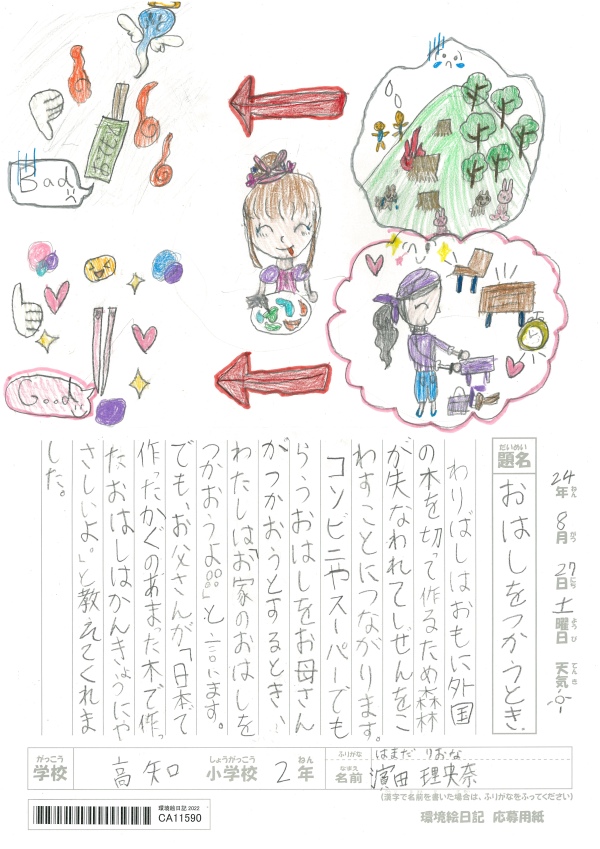 Bad
Good
24年ねん 8月がつ 27日にち 土曜日ようび 天気てんき
題名だいめい おはしをつかうとき
わりばしはおもに外国
の木を切って作るため森林
が失なわれてしぜんをこ
わすことにつながります。
コンビニやスーパーでも
らうおはしをお母さん
がつかおうとするとき、
わたしは「お家のおはしを
つかおうよ。」と言います。
でも、お父さんが「日本で
作ったかぐのあまった木で作っ
たおはしはかんきょうにや
さしいよ。」と教えてくれま
した。
がっこう しょうがっこう ねん ふりがな はまだ りおな
学校 高知 小学校 2年 なまえ 名前 濵田 理央奈
(漢字で名前を書いた場合は、ふりがなをふってください)
環境絵日記 2022
CA11590
環境絵日記 応募用紙